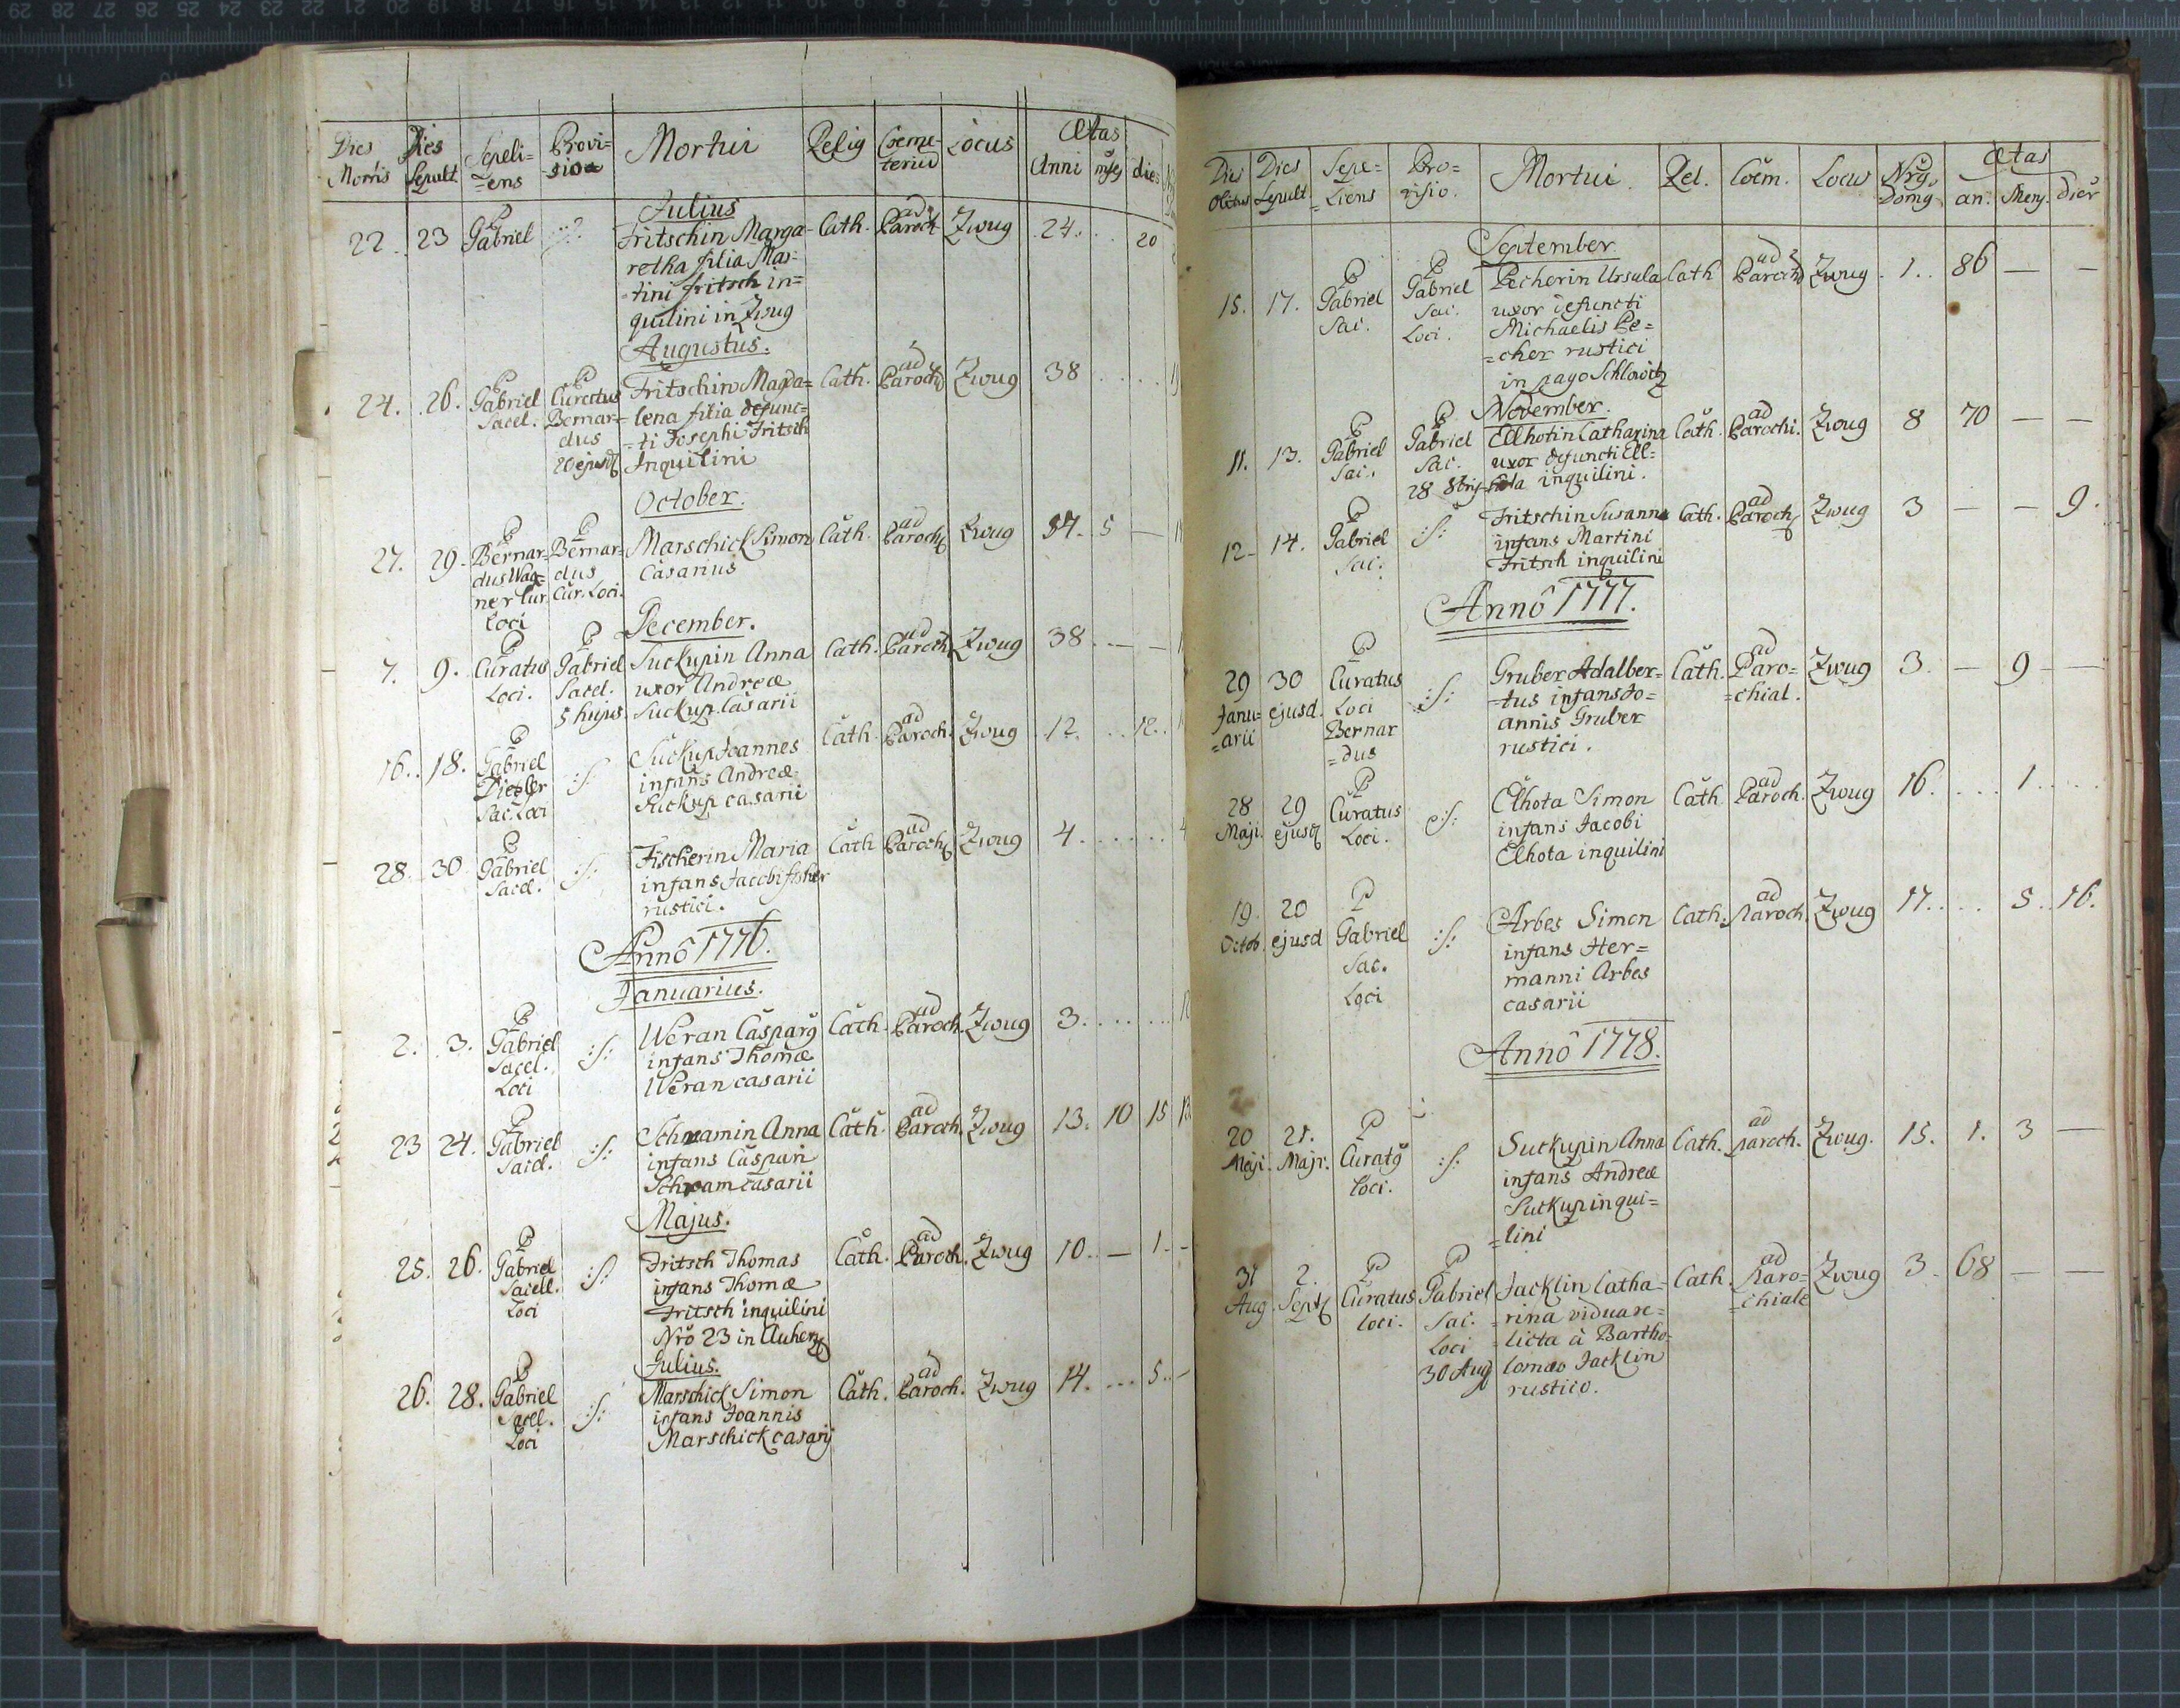 Dies Mortis | Dies Sepult | Sepeli=ens | Provi=sio | Mortui | Relig | Coeme-teriu | Locus | Ætas Anni | mses | dies
Julius
22. 23 P Gabriel Fritschin Marga- Cath. ad Paroch Zwug 24. . . 20
retha filia Mar-
tini Fritsch in=
quilini in Zwug
Augustus.
24. 26. P Gabriel P Curatus Fritschin Magda= Cath. ad Paroch Zwug 38 . . . .
Sacel. Bernar- lena filia defunc=
dus -ti Josephi Fritsch
20 ejusd Inquilini
October.
27. 29. P Bernar- P Bernar- Marschick Simon Cath. ad Paroch Zwug 84. 5 —
dus Wag= dus Casarius
ner Cur. Cur. Loci.
Loci
December.
7. 9. P Curatus P Gabriel Suckupin Anna Cath. ad Paroch Zwug 38. — —
Loci. Sacel. uxor Andreæ
5 hujus. Suckup Casarii
16. 18. P Gabriel :/: Suckup Joannes Cath. ad Paroch. Zwug 12. . . 12.
infans Andreæ
Sac. Loci Suckup casarii
28. 30. P Gabriel :/: Fischerin Maria Cath ad Paroch Zwug 4. . . . . .
Sacel. infans Jacobi fisher
rustici.
Anno 1776.
Januarius.
2. 3. P Gabriel :/: Weran Caspar9 Cath. ad Paroch. Zwug 3. . . . .
Sacel. infans Thomæ
Loci Weran casarii
23 24. P Gabriel :/: Schwamin Anna Cath. ad Paroch. Zwug 13. 10 15
Sacel. infans Caspari
Schwam casarii
Majus.
25. 26. P Gabriel :/: Fritsch Thomas Cath. ad Paroch. Zwug 10. — 1. -
Sacell. infans Thomæ
Loci Fritsch inquilini
Nrō 23 in Auherz
Julius.
26. 28. P Gabriel :/: Marschick Simon Cath. ad Paroch. Zwug 14. . . . 5. . -
Sacel. infans Joannis
Loci Marschick casarij
Dies Obitus | Dies Sepult | Sepe=Liens | Pro=visio. | Mortui. | Rel. | Coem. | Locus | Nr9 Dom9 | Ætas an. | Mens. | dies
September
15. 17. P Gabriel P Gabriel Pecherin Ursula Cath ad Paroch Zwug. 1. . 86 — —
Sac. Sac. uxor defuncti
Loci. Michaelis Pe=
=cher rustici
in pago Schlowitz
November.
11. 13. P Gabriel P Gabriel Ellhotin Catharina Cath. ad Parochi. Zwug 8 70 — —
Sac. Sac. uxor defuncti Ell=
28 8bris hota inquilini.
12. 14. P Gabriel :/: Fritschin Susanna Cath. ad Paroch Zwug 3 — — 9.
Sac. infans Martini
Fritsch inquilini
Anno 1777.
29 30 P Curatus :/: Gruber Adalber= Cath. ad Paro= Zwug 3. — 9 —
Janu= ejusd. Loci =tus infans Jo= =chial.
=arii Bernar annis Gruber
=dus rustici.
28 29 P Curatus :/: Elhota Simon Cath ad Paroch. Zwug 16. . . . 1. . . .
Maji. ejusd Loci. infans Jacobi
Elhota inquilini
19. 20 P Gabriel :/: Arbes Simon Cath. ad Paroch. Zwug 17. . . 5. . 16.
Octob. ejusd Sac. infans Her=
Loci manni Arbes
casarii
Anno 1778.
20 21. P Curat9 :/: Suckupin Anna Cath. ad Paroch. Zwug. 15. 1. 3 —
Maji. Maji. Loci. infans Andreæ
Suckup inqui=
=lini
31 2. P Curatus P Gabriel Jacklin Catha- Cath. ad Paro= Zwug 3. 68 — —
Aug. Sept Loci. Sac. =rina vidua re= =chiale
Loci =licta a Bartho=
30 Aug lomæo Jacklin
rustico.